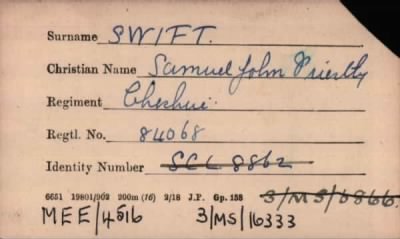 Surname SWIFT.
Christian Name Samuel John Priestly
Regiment Cheshire.
Regtl. No. 84068
Identity Number SCL 8862
6651 19801/902 200m (16) 2/18 J.P. Gp.158 3/MS/6866.
MEE/4516 3/MS/10333